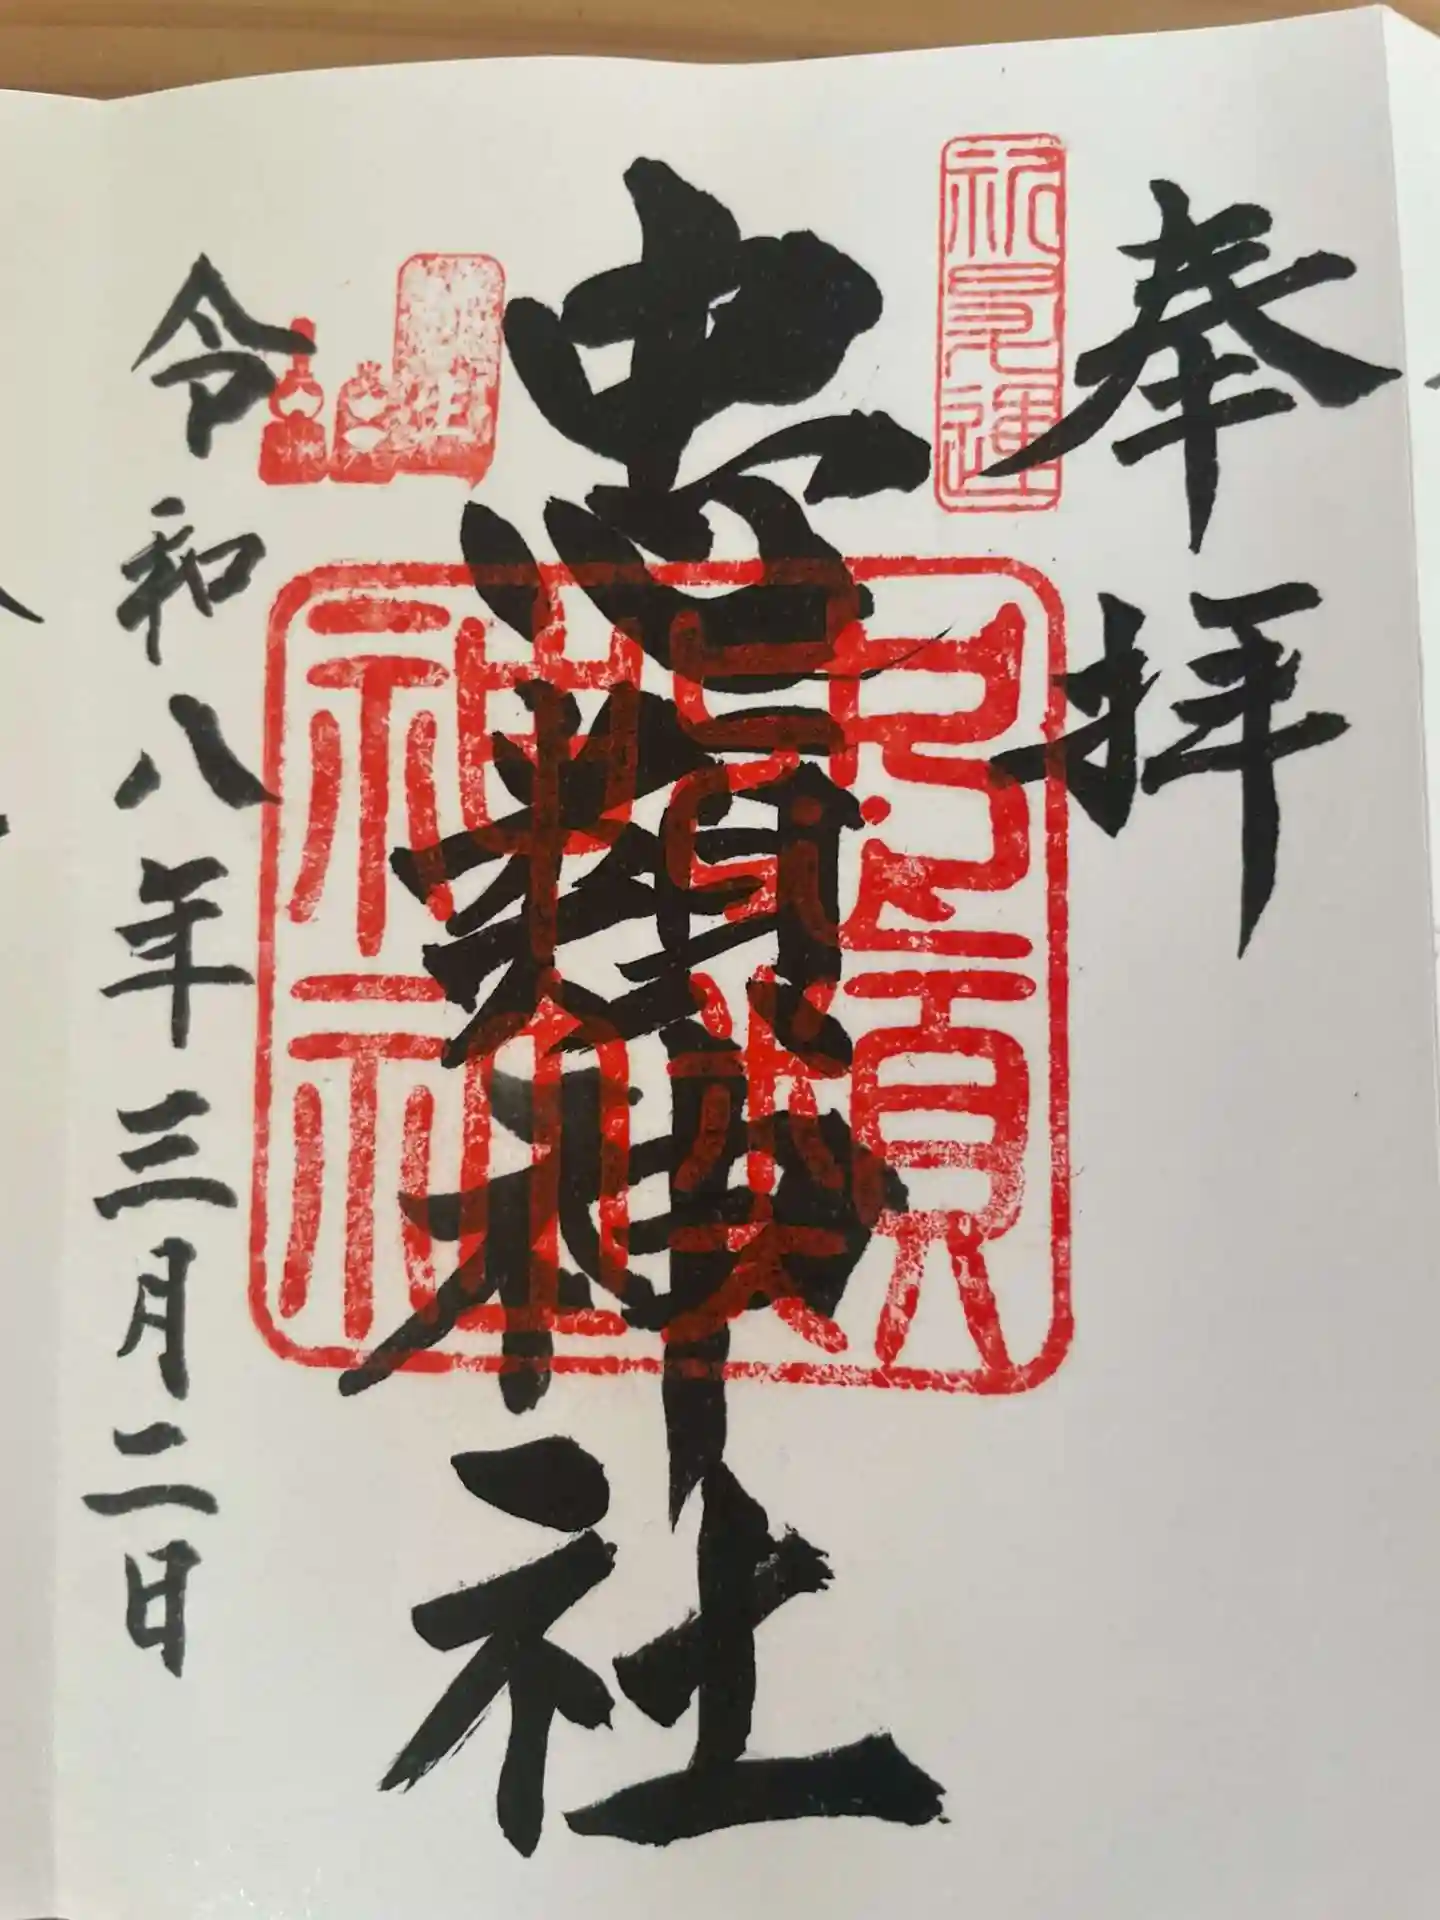 奉拝
忠類神社
令和八年三月二日
神社